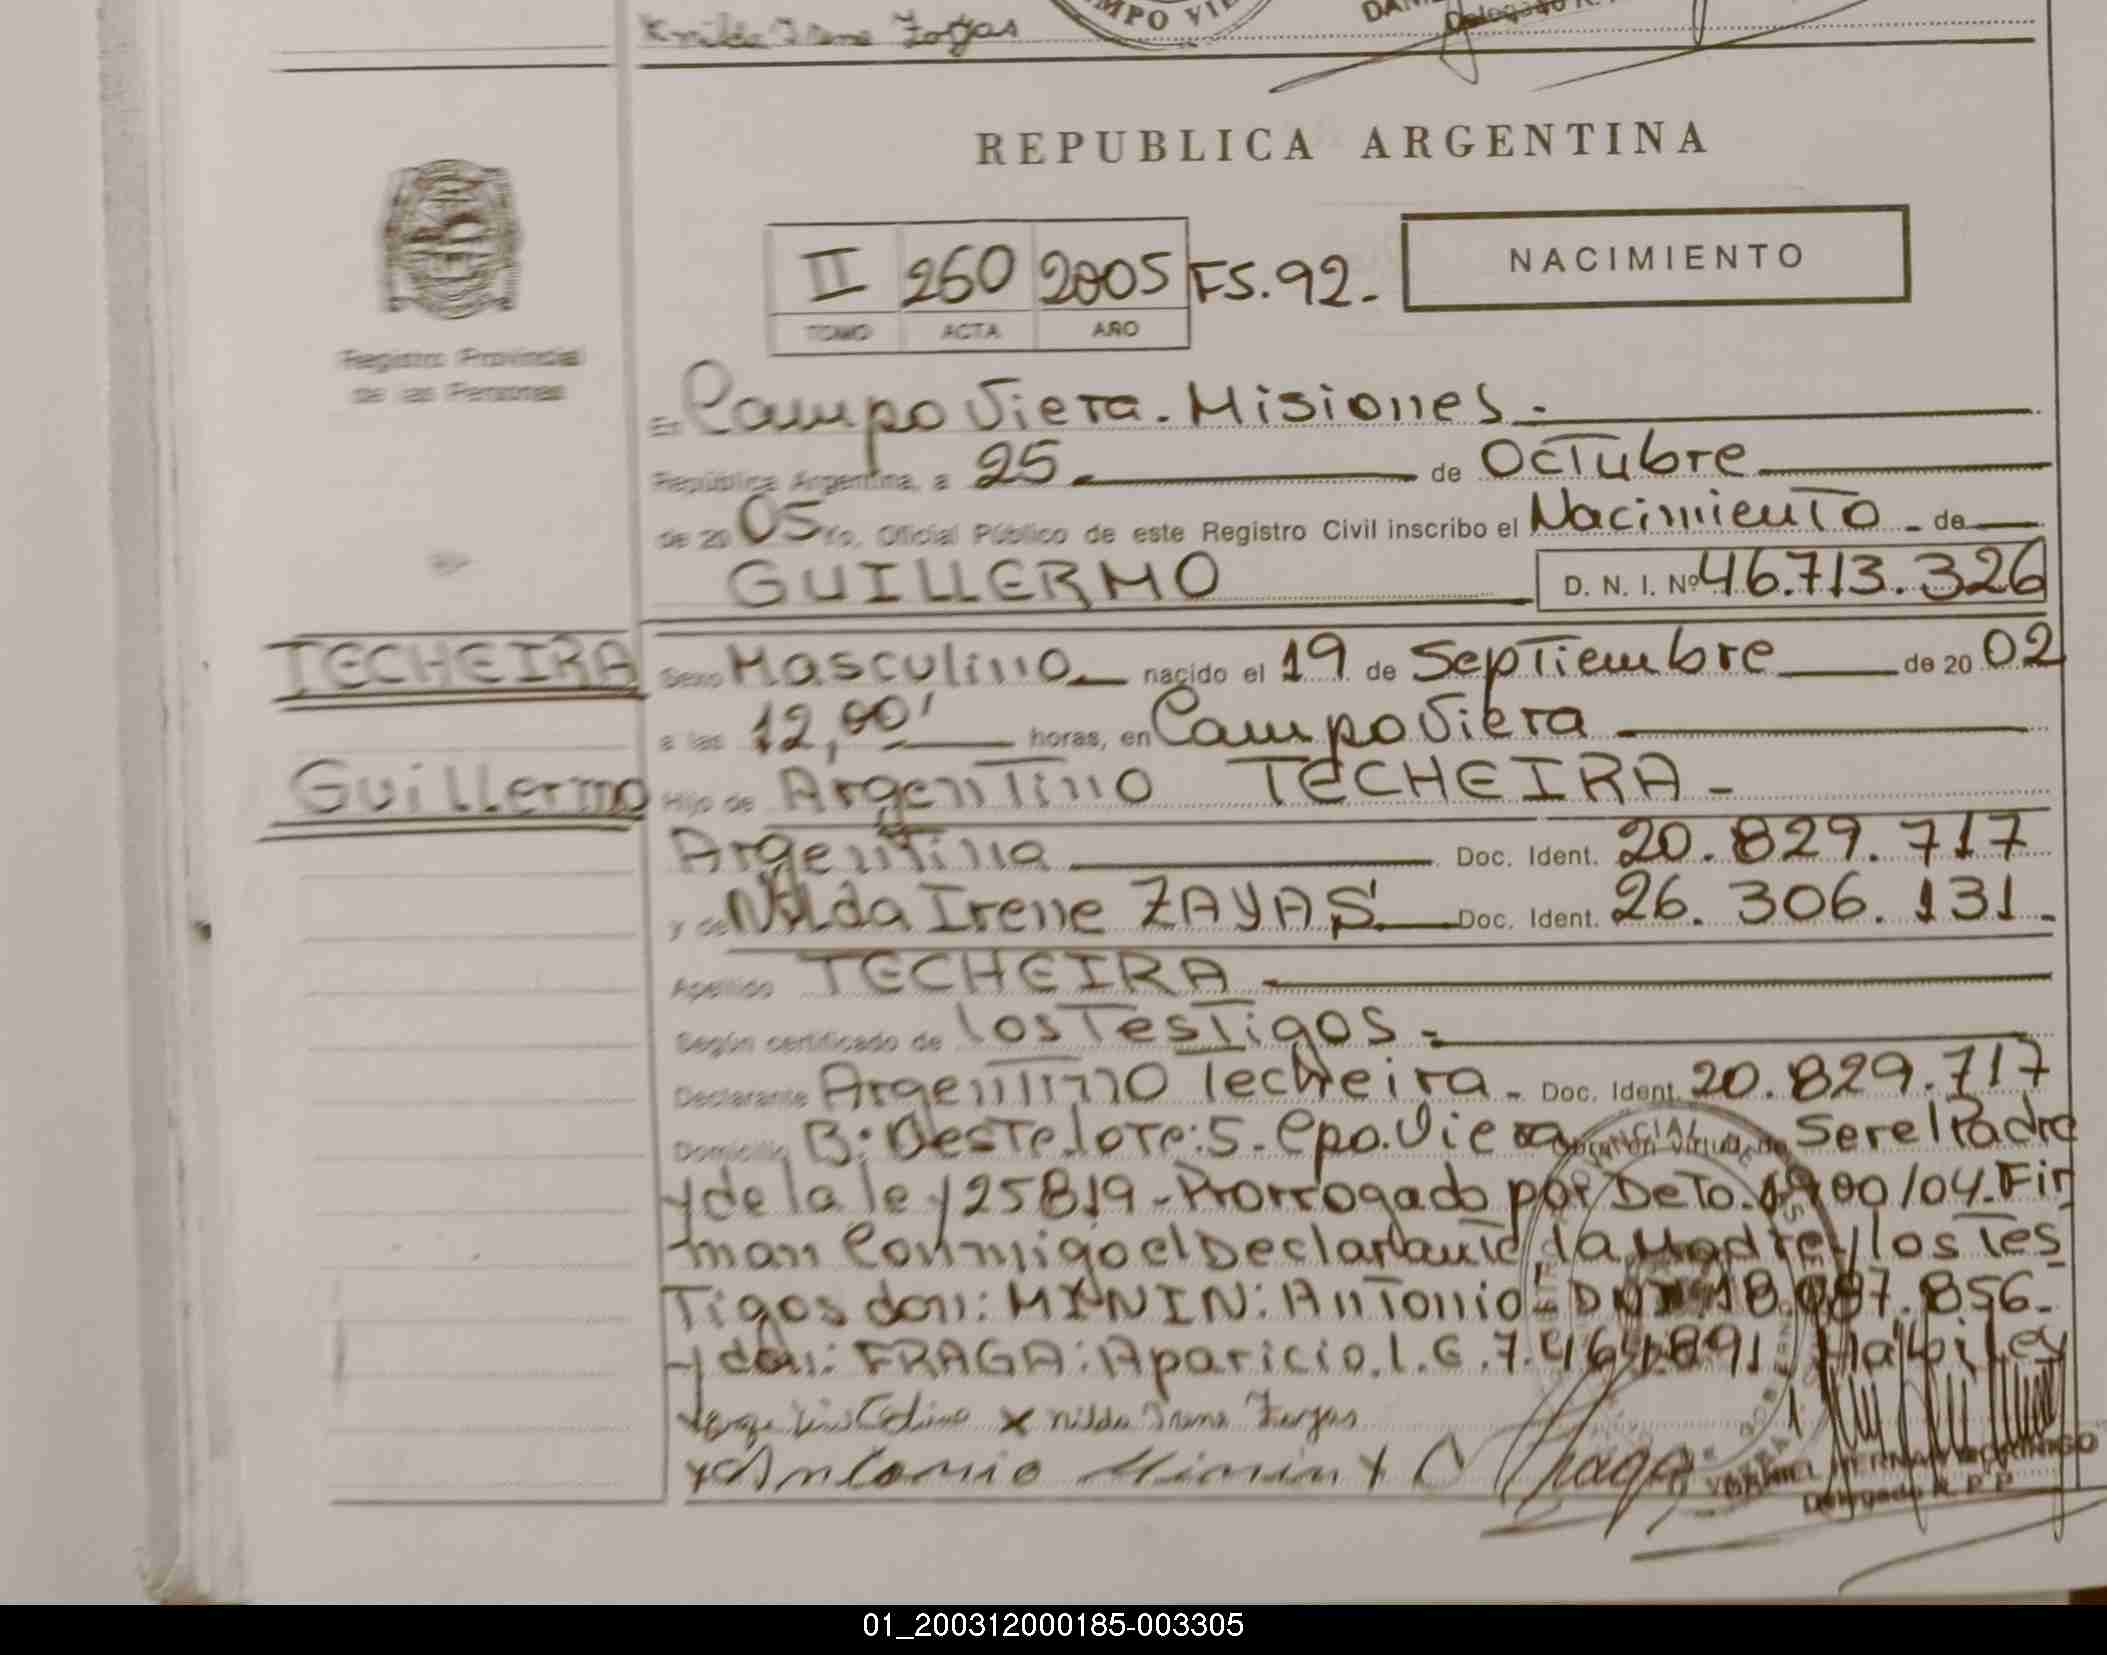 Nilda Irene Zayas
REPUBLICA ARGENTINA
II 260 2005 FS.92.-
TOMO ACTA AÑO
NACIMIENTO
Registro Provincial
de las Personas
En Campo Viera. Misiones.-
República Argentina, a 25 de Octubre
de 20 05 Yo, Oficial Público de este Registro Civil inscribo el Nacimiento - de
GUILLERMO D. N. I. Nº 46.713.326
TECHEIRA
Sexo Masculino nacido el 19 de Septiembre de 20 02
a las 12,00' horas, en Campo Viera
Guillermo
Hijo de Argentino TECHEIRA -
Argentina Doc. Ident. 20.829.717
y de Nilda Irene ZAYAS Doc. Ident. 26.306.131.-
Apellido TECHEIRA
Según certificado de los Testigos.-
Declarante Argentino Techeira - Doc. Ident. 20.829.717
Domicilio B: Oeste. lote: 5. Cpo. Viera Obra en virtud de Ser el Padre
y de la ley 25819 - Prorrogado por Deto. 1900/04. Fir
man Conmigo el Declarante, la Madre y los Tes
Tigos don: MININ: Antonio - DNI 18.087.856-
y don: FRAGA: Aparicio. L.E. 7.464.891
x Nilda Irene Zayas
x Antonio Minin x Fraga
Delegado R.P.P
01_200312000185-003305